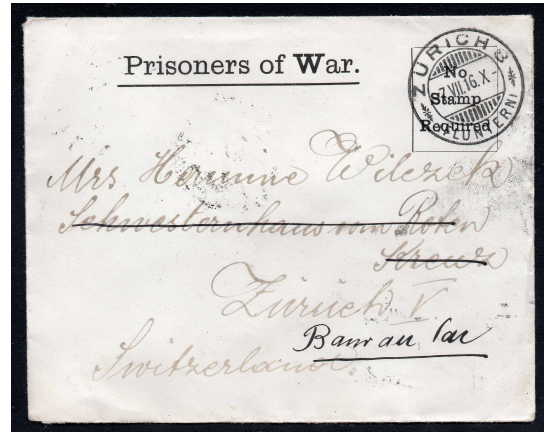 Prisoners of War.
No
Stamp
Required
ZÜRICH 8
7.VII.16.X-
(FLUNTERN)
Mrs Hermine Wilczek
Schwesternhaus vom Roten
Kreuz
Zürich V
Switzerland